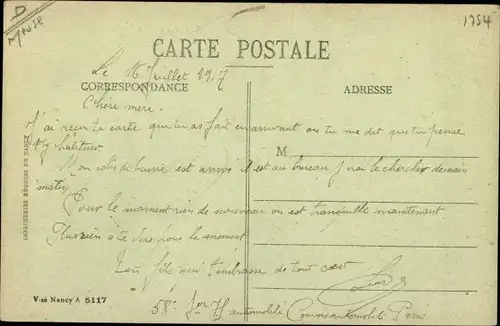 D
Meuse
1754
CARTE POSTALE
Le 16 Juillet 1917
CORRESPONDANCE
ADRESSE
Chère mère.
J'ai reçu ta carte que tu as fait en arrivant ou tu me dit que tu pense
t'y habituer
M
Mon colis de beurre est arrivé il est au bureau j'irai le chercher demain
matin
Pour le moment rien de nouveau on est tranquille maintenant
Plus rien à te dire pour le moment
Ton fils qui t'embrasse de tout cœur
58e automobile Paris
IMPRIMERIES RÉUNIES DE NANCY
Visé Nancy A 5117